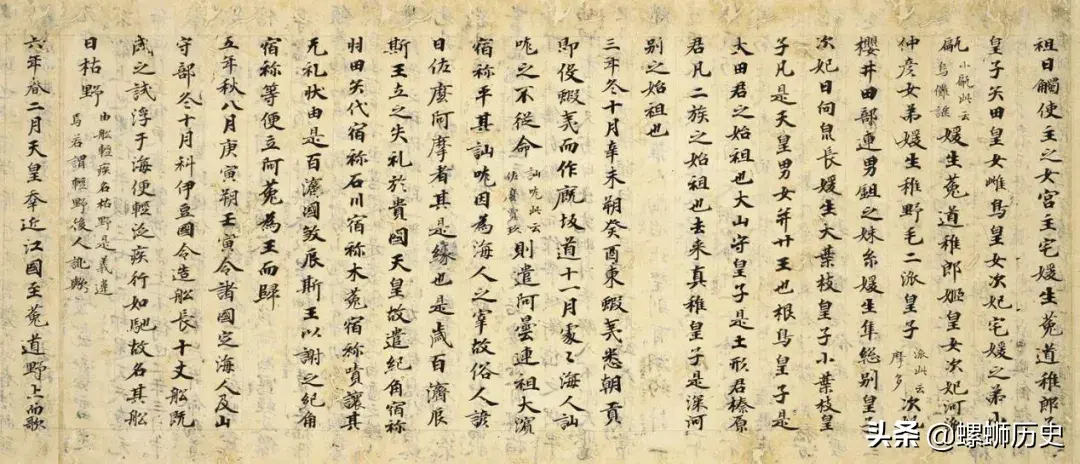 祖日觸使主之女宮主宅媛生菟道稚郎
皇子矢田皇女雌鳥皇女次妃宅媛之弟小
甂小甂此云烏儺謎媛生菟道稚郎姬皇女次妃河
仲彥女弟媛生稚野毛二派皇子派此云摩多次
櫻井田部連男鉏之妹糸媛生隼總別皇
次妃日向泉長媛生大葉枝皇子小葉枝皇
子凡是天皇男女并廿王也根鳥皇子是
大田君之始祖也大山守皇子是土形君榛原
君凡二族之始祖也去来真稚皇子是深河
別之始祖也
三年冬十月辛未朔癸酉東蝦夷悉朝貢
即役蝦夷而作厩坂道十一月處〻海人訕
哤之不従命訕哤此云佐麼賣玖則遣阿曇連祖大濱
宿祢平其訕哤因為海人之宰故俗人諺
曰佐麼阿摩者其是緣也是歲百濟辰
斯王立之失礼於貴國天皇故遣紀角宿祢
羽田矢代宿祢石川宿祢木菟宿祢嘖讓其
无礼狀由是百濟國敘辰斯王以謝之紀角
宿祢等便立阿菟為王而歸
五年秋八月庚寅朔壬寅令諸國定海人及山
守部冬十月科伊豆國令造舩長十丈舩既
成之試浮于海便輕泛疾行如馳故名其舩
曰枯野由舩輕疾名枯野是義違焉若謂輕野後人訛歟
六年春二月天皇幸近江國至菟道野上而歌
头条 @螺蛳历史